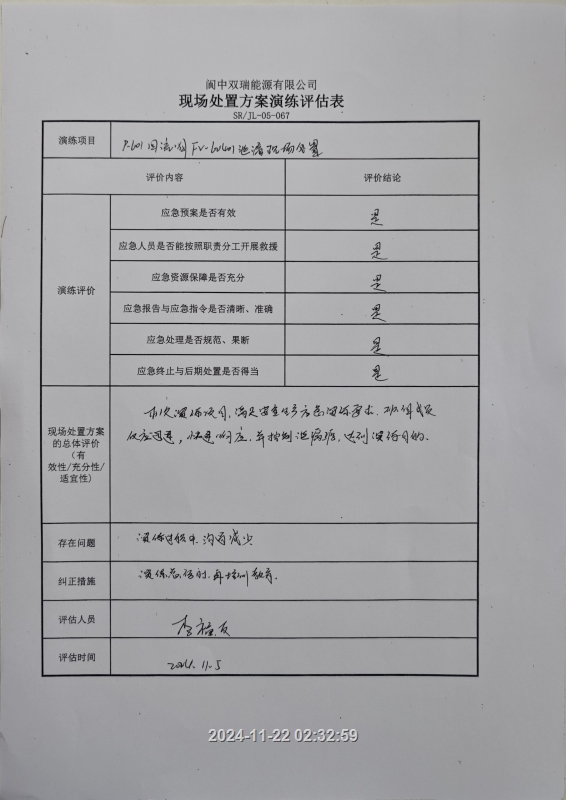 阆中双瑞能源有限公司
现场处置方案演练评估表
SR/JL-05-067
演练项目
P-601回流阀FV-60401泄漏现场处置
评价内容
评价结论
演练评价
应急预案是否有效
是
应急人员是否能按照职责分工开展救援
是
应急资源保障是否充分
是
应急报告与应急指令是否清晰、准确
是
应急处理是否规范、果断
是
应急终止与后期处置是否得当
是
现场处置方案
的总体评价
(有
效性/充分性/
适宜性)
本次演练项目,满足安全生产方案演练要求,班组成员
反应迅速,快速响应,并控制泄漏源,达到演练目的。
存在问题
演练过程中,沟通减少
纠正措施
演练总结时,再培训教育。
评估人员
李 友
评估时间
2024.11.5
2024-11-22 02:32:59